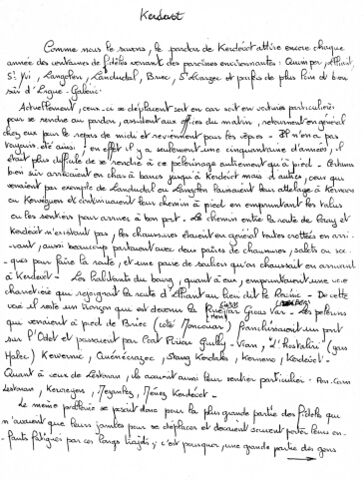 Kerdévot
Comme nous le savons, le pardon de Kerdévot attire encore chaque
année des centaines de fidèles venant des paroisses environnantes : Quimper, Elliant,
St Yvi, Langolen, Landudal, Briec, St Evarzec et parfois de plus loin et bien
sûr d'Ergué-Gabéric.
Actuellement, ceux-ci se déplacent soit en car soit en voitures particulières
pour se rendre au pardon, assistent aux offices du matin, retournent en général
chez eux pour le repas de midi et reviennent pour les vêpres - Il n'en a pas
toujours été ainsi ; en effet il y a seulement une cinquantaine d'années, il
était plus difficile de se rendre à ce pèlerinage autrement qu'à pied - Certains
bien sûr arrivaient en chars à bancs jusqu'à Kerdévot mais d'autres, ceux qui
venaient par exemple de Landudal ou Langolen laissaient leur attelage à
ou et continuaient leur chemin à pied en empruntant les voies
ou les sentiers pour arriver à bon port - Le chemin entre la route de et
Kerdévot n'existant pas, les chaussures étaient en général toutes crottées en arri-
-vant, aussi beaucoup partaient avec deux paires de chaussures, sabots ou soc-
-ques pour faire la route, et une paire de souliers qu'on chaussait en arrivant
à Kerdévot - Les habitants du bourg, quant à eux, empruntaient une voie
charretière qui rejoignait la route d'Elliant au lieu dit le - De cette
voie il reste un tronçon qui est devenu la Rue - Les pèlerins
qui venaient à pied de Briec (côté ) franchissaient un pont
sur l'Odet et passaient par -Vian, "L'Hostaliri" (gars
Halec) , Quénéc'hzec, , , Kerdévot -
Quant à ceux de Lestonan, ils avaient aussi leur sentier particulier -
Lestonan, , , Kerdévot -
Le même problème se posait donc pour la plus grande partie des fidèles qui
n'avaient que leurs jambes pour se déplacer et devaient souvent porter leurs en-
-fants fatigués par ces longs trajets ; c'est pourquoi, une grande partie des gens